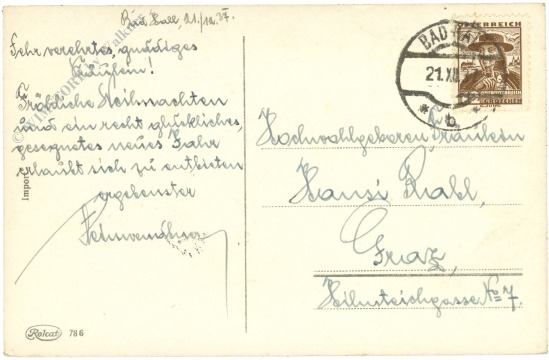 Bad Hall, 21/12.37.
Sehr verehrtes, gnädiges
Fräulein!
Fröhliche Weihnachten
und ein recht glückliches,
gesegnetes neues Jahr
erlaubt sich zu entbieten
ergebenster
Import
Relcat 786
ÖSTERREICH
BAD HALL
21.XII
* b *
GROSCHEN
Hochwohlgeboren Fräulein
Hansi Rahl,
Graz,
Hilmteichgasse No 7.